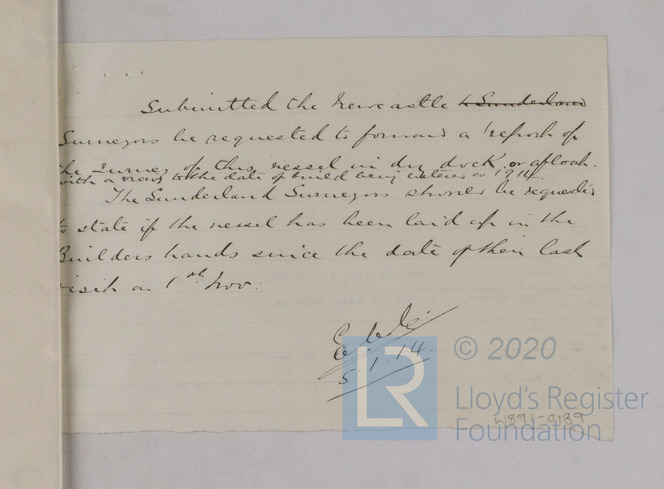 Submitted the Newcastle & Sunderland
Surveyors be requested to forward a report of
the survey of this vessel in dry dock or afloat.
with a view to the date of build being entered as 1914.
The Sunderland Surveyors should be requested
to state if the vessel has been laid up in the
Builders hands since the date of their last
visit on 1st Nov:
5.1.14
© 2020
LR
Lloyd's Register
Foundation
W891-0139